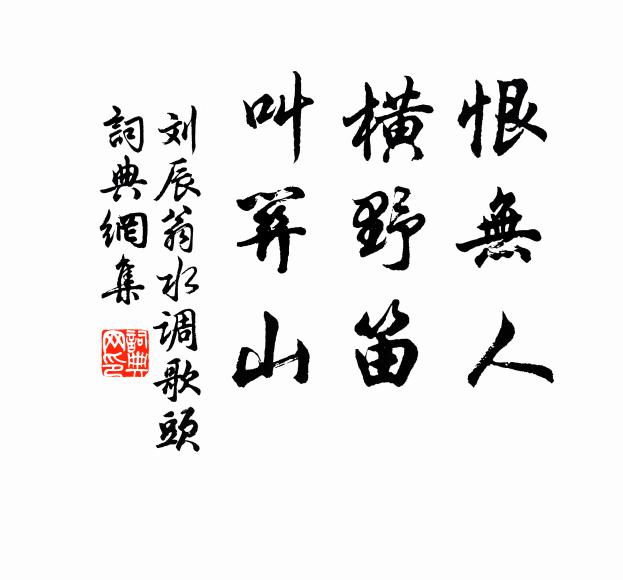 恨無人
橫野笛
叫關山
刘辰翁水调歌頭
詞典網集
詞典
网印